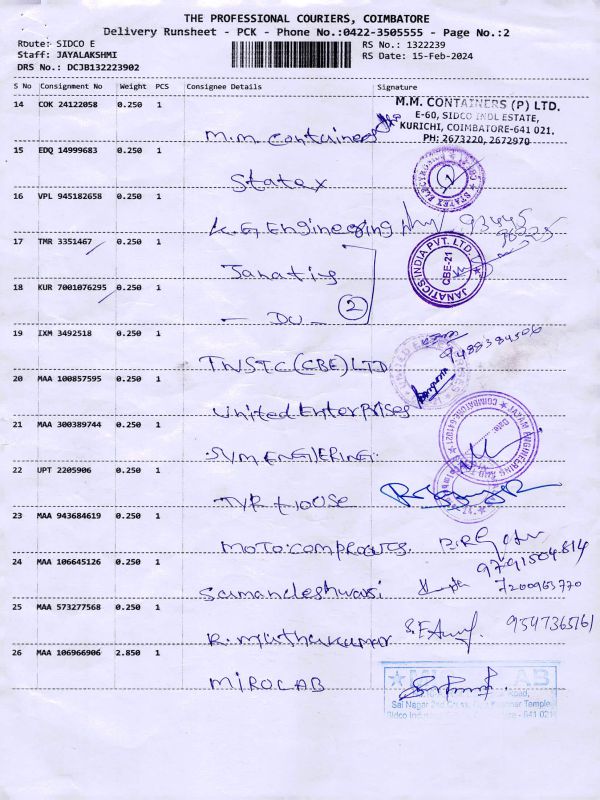 THE PROFESSIONAL COURIERS, COIMBATORE
Delivery Runsheet - PCK - Phone No.:0422-3505555 - Page No.:2
Route: SIDCO E
Staff: JAYALAKSHMI
DRS No.: DCJB132223902
RS No.: 1322239
RS Date: 15-Feb-2024
S No Consignment No Weight PCS Consignee Details Signature
14 COK 24122058 0.250 1
M.M. CONTAINERS (P) LTD.
E-60, SIDCO INDL ESTATE,
KURICHI, COIMBATORE-641 021.
PH: 2673220, 2672970
M.M Containers
15 EDQ 14999683 0.250 1
Statex
STATEX ELECTRONICS
16 VPL 945182658 0.250 1
K.G. Engineering
17 TMR 3351467 0.250 1
JANATICS INDIA PVT. LTD.
CBE-21
18 KUR 7001076295 0.250 1
2
- DO -
19 IXM 3492518 0.250 1
TNSTC (CBE) LTD
9488384506
20 MAA 100857595 0.250 1
United Enterprises
21 MAA 300389744 0.250 1
SVM ENGIERING
22 UPT 2205906 0.250 1
23 MAA 943684619 0.250 1
24 MAA 106645126 0.250 1
9791504814
7200963770
25 MAA 573277568 0.250 1
R. Muthukumar
9547365161
26 MAA 106966906 2.850 1
MIROLAB